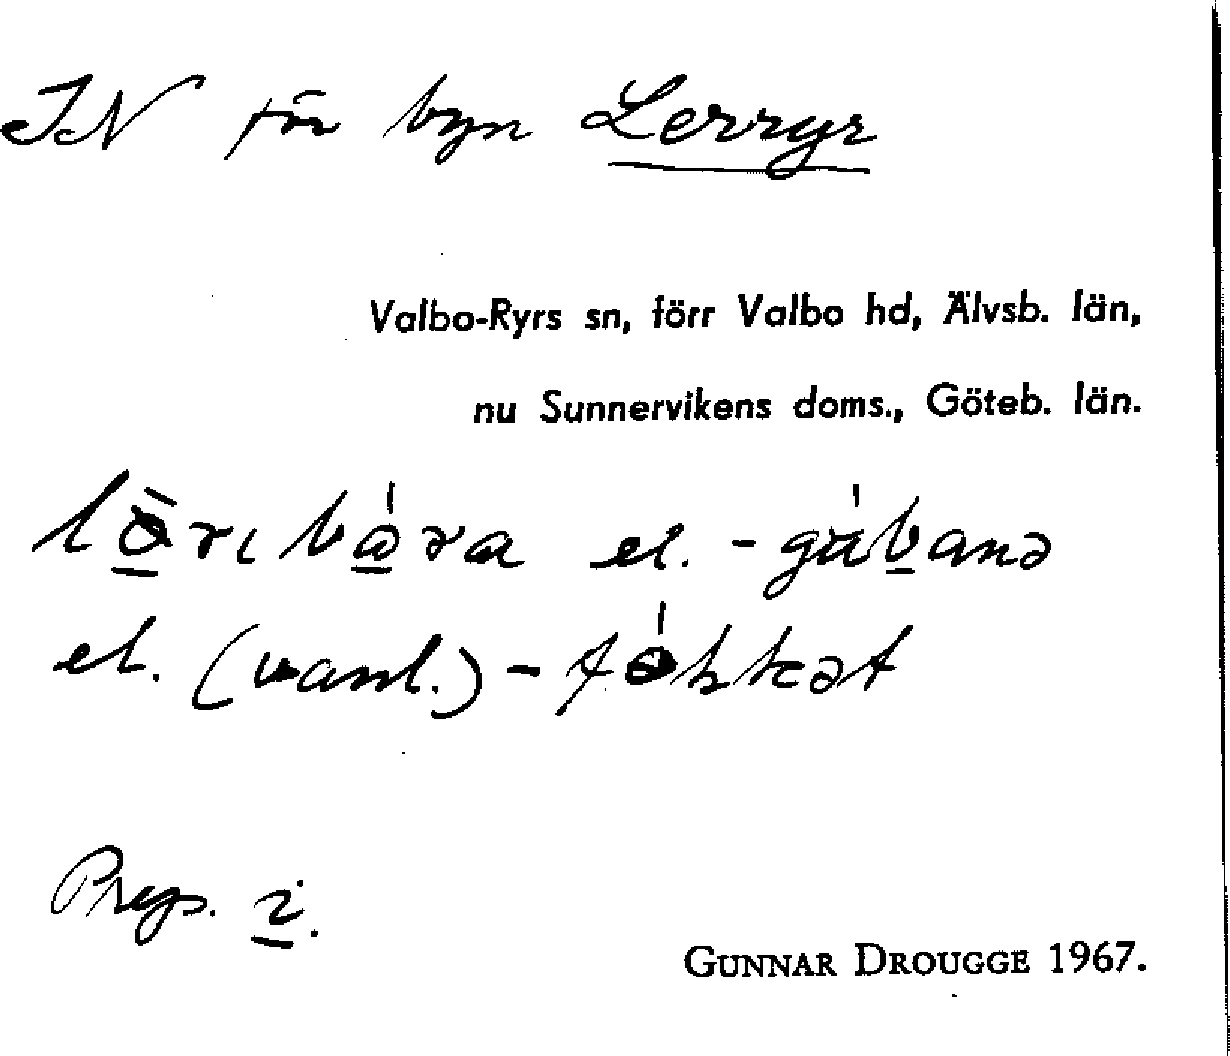 IN för byn Lerryr
Valbo-Ryrs sn, förr Valbo hd, Älvsb. län,
nu Sunnervikens doms., Göteb. län.
el.
el. (vanl.)
Prep. i.
GUNNAR DROUGGE 1967.